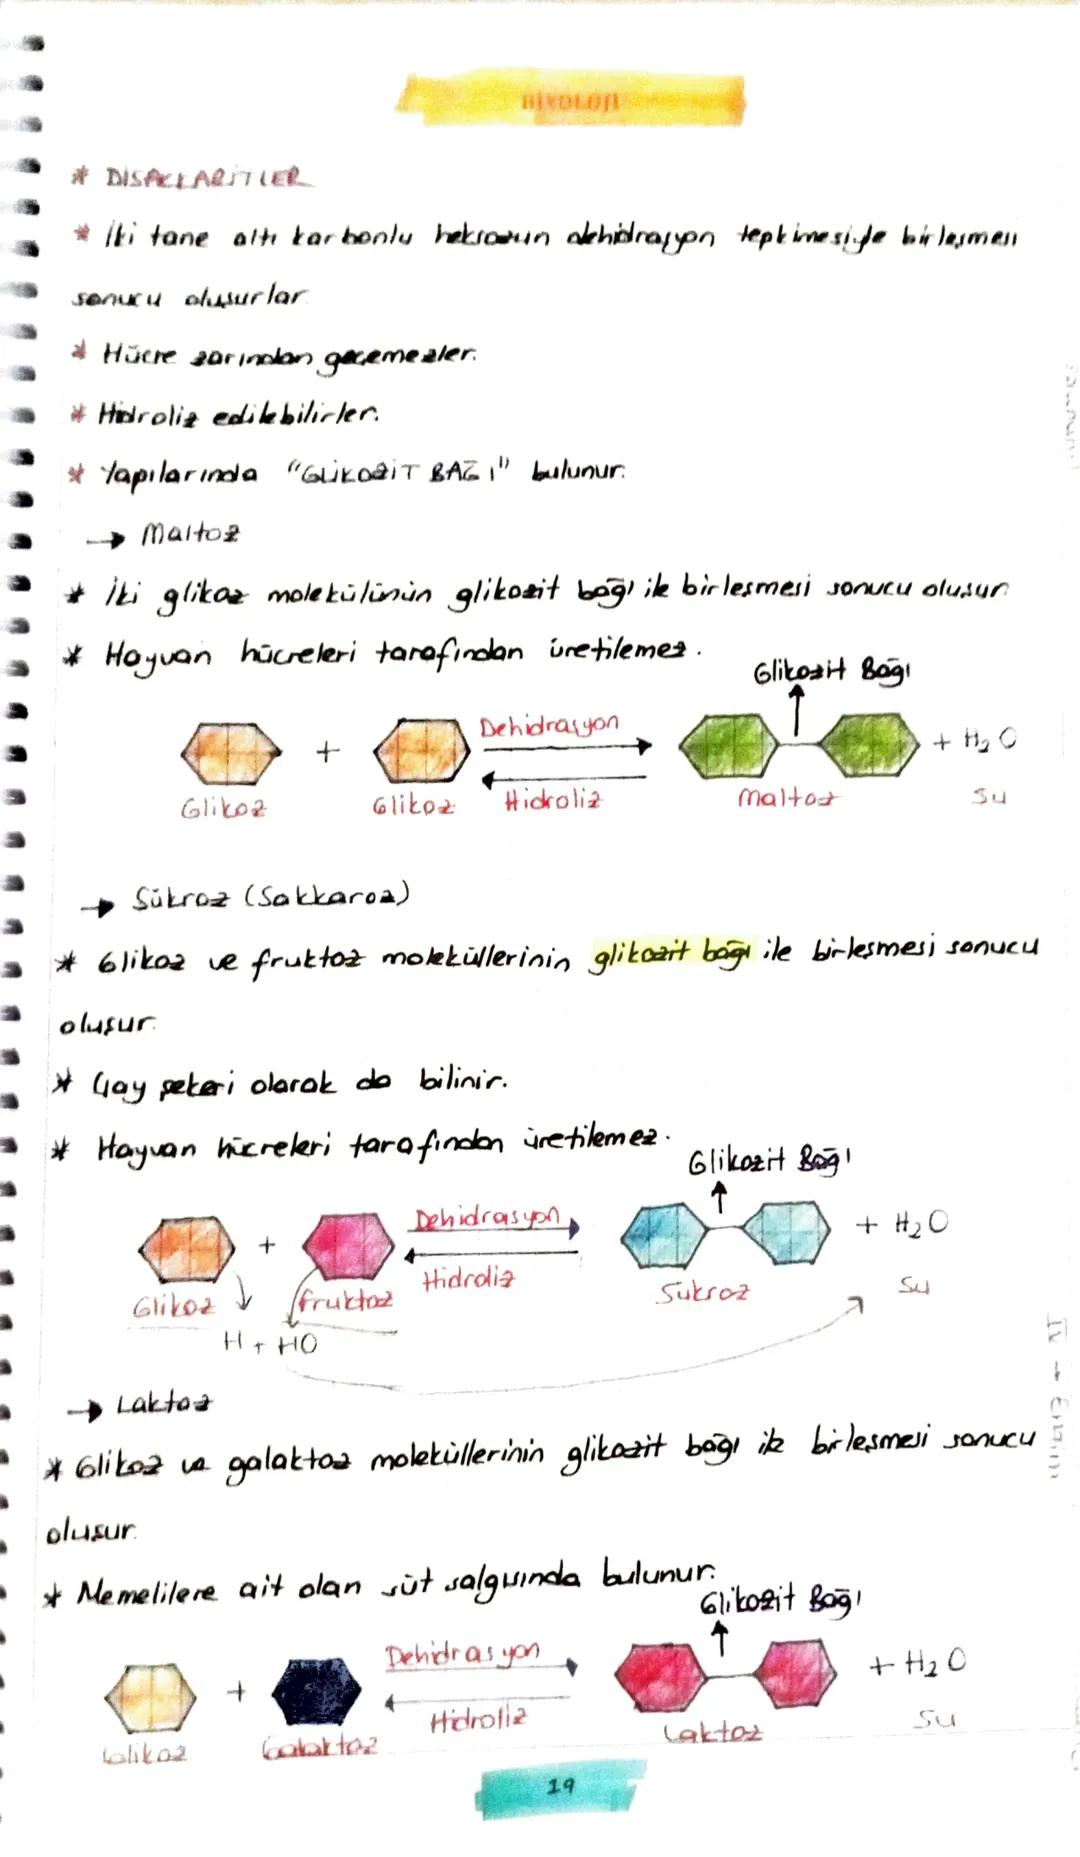 BİYOLOJİ
* DİSAKKARİTLER
* İki tane altı karbonlu heksozun dehidrasyon tepkimesiyle birleşmesi
sonucu oluşurlar.
* Hücre zarından geçemezler.
* Hidroliz edilebilirler.
* Yapılarında "GLİKOZİT BAĞI" bulunur.
→ Maltoz
* İki glikoz molekülünün glikozit bağı ile birleşmesi sonucu oluşur.
* Hayvan hücreleri tarafından üretilemez.
Glikozit Bağı
+ Dehidrasyon + H₂O
Glikoz Glikoz Hidroliz Maltoz Su
→ Sükroz (Sakkaroz)
* Glikoz ve fruktoz moleküllerinin glikozit bağı ile birleşmesi sonucu
oluşur.
* Çay şekeri olarak da bilinir.
* Hayvan hücreleri tarafından üretilemez.
Glikozit Bağı
+ Dehidrasyon + H₂O
Glikoz fruktoz Hidroliz Sükroz Su
H + HO
→ Laktoz
* Glikoz ve galaktoz moleküllerinin glikozit bağı ile birleşmesi sonucu
oluşur.
* Memelilere ait olan süt salgısında bulunur.
Glikozit Bağı
+ Dehidrasyon + H₂O
Glikoz Galaktoz Hidroliz Laktoz Su
19